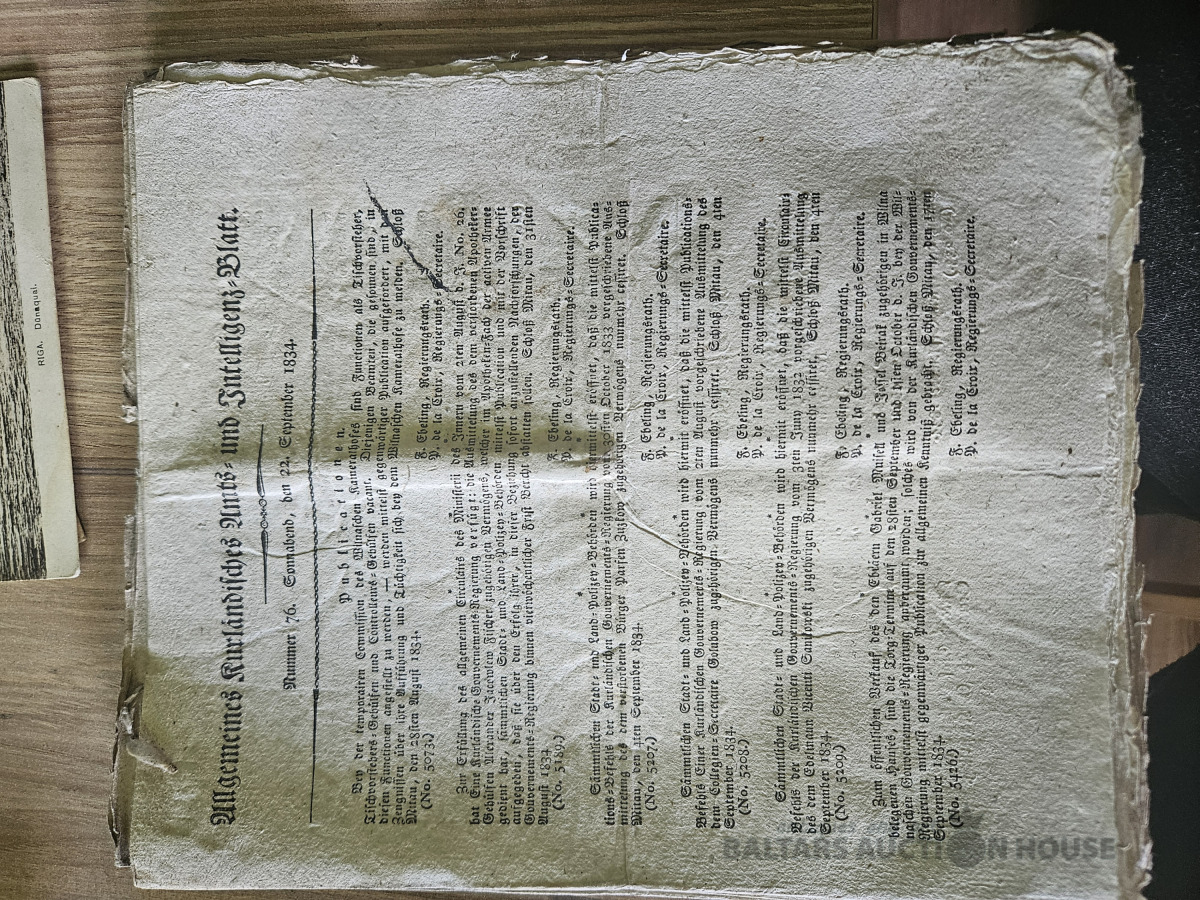 Allgemeines Kurländisches Amts- und Intelligenz-Blatt.
Nummer 76. Sonnabend, den 22. September 1834.
Publicationen.
Bey der temporären Commission des Wilnaschen Kameralhofes sind Functionen als Tischvorsteher,
Tischvorstehers-Gehülfen und Controlleurs-Gehülfen vacant. Diejenigen Beamten, die gesonnen sind, in
diesen Functionen angestellt zu werden, — werden mittelst gegenwärtiger Publication aufgefordert, mit
Zeugnissen über ihre Aufführung und Tüchtigkeit sich bey dem Wilnaschen Kameralhofe zu melden. Schloß
Mitau, den 28sten August 1834.
F. Ebeling, Regierungsrath.
(No. 5073.) P. de la Croix, Regierungs-Secretaire.
Zur Erfüllung des allgemeinen Circulairs des Ministerii des Innern vom 21ten August d. J. No. 20,
hat Eine Kurländische Gouvernements-Regierung verfügt: die Ausmittelung des dem verstorbenen Apothekers-
Gehülfen Alexander Jacowlew Fischer zugehörigen Vermögens, welcher im Apotheker-Fach der activen Armee
gedient hat, sämmtlichen Stadt- und Land-Polizey-Behörden mittelst Publication und mit der Vorschrift
aufzugeben, daß sie über den Erfolg ihrer, in dieser Beziehung sofort anzustellenden Nachforschungen, der
Gouvernements-Regierung binnen vierwöchentlicher Frist Bericht abstatten sollen. Schloß Mitau, den 31sten
August 1834.
F. Ebeling, Regierungsrath.
(No. 5189.) P. de la Croix, Regierungs-Secretaire.
Sämmtlichen Stadt- und Land-Polizey-Behörden wird desmittelst eröffnet, daß die mittelst Publica-
tions-Befehls der Kurländischen Gouvernements-Regierung vom 30sten October 1833 vorgeschriebene Aus-
mittelung des dem verstorbenen Bürger Parfen Zuzkow zugehörigen Vermögens nunmehr cessiret. Schloß
Mitau, den 4ten September 1834.
F. Ebeling, Regierungsrath.
(No. 5207.) P. de la Croix, Regierungs-Secretaire.
Sämmtlichen Stadt- und Land-Polizey-Behörden wird hiermit eröffnet, daß die mittelst Publications-
Befehls Einer Kurländischen Gouvernements-Regierung vom 2ten August vorgeschriebene Ausmittelung des
dem Collegien-Secretaire Golubow zugehörigen Vermögens nunmehr cessiret. Schloß Mitau, den 4ten
September 1834.
F. Ebeling, Regierungsrath.
(No. 5208.) P. de la Croix, Regierungs-Secretaire.
Sämmtlichen Stadt- und Land-Polizey-Behörden wird hiermit eröffnet, daß die mittelst Circulair-
Befehls der Kurländischen Gouvernements-Regierung vom 3ten Juny 1832 vorgeschriebene Ausmittelung
des dem Edelmann Vicenti Sankowski zugehörigen Vermögens nunmehr cessiret. Schloß Mitau, den 4ten
September 1834.
F. Ebeling, Regierungsrath.
(No. 5209.) P. de la Croix, Regierungs-Secretaire.
Zum öffentlichen Verkauf des den Ebräern Gabriel Mussell und Jossel Betrak zugehörigen in Wilna
belegenen Hauses, sind die Torg-Termine auf den 28sten September und 1sten October d. J. bey der Wil-
naschen Gouvernements-Regierung anberaumt worden; solches wird von der Kurländischen Gouvernements-
Regierung mittelst gegenwärtiger Publication zur allgemeinen Kenntniß gebracht. Schloß Mitau, den 17ten
September 1834.
F. Ebeling, Regierungsrath.
(No. 5426.) P. de la Croix, Regierungs-Secretaire.
RIGA. Dünaquai.
BALTARS AUCTION HOUSE